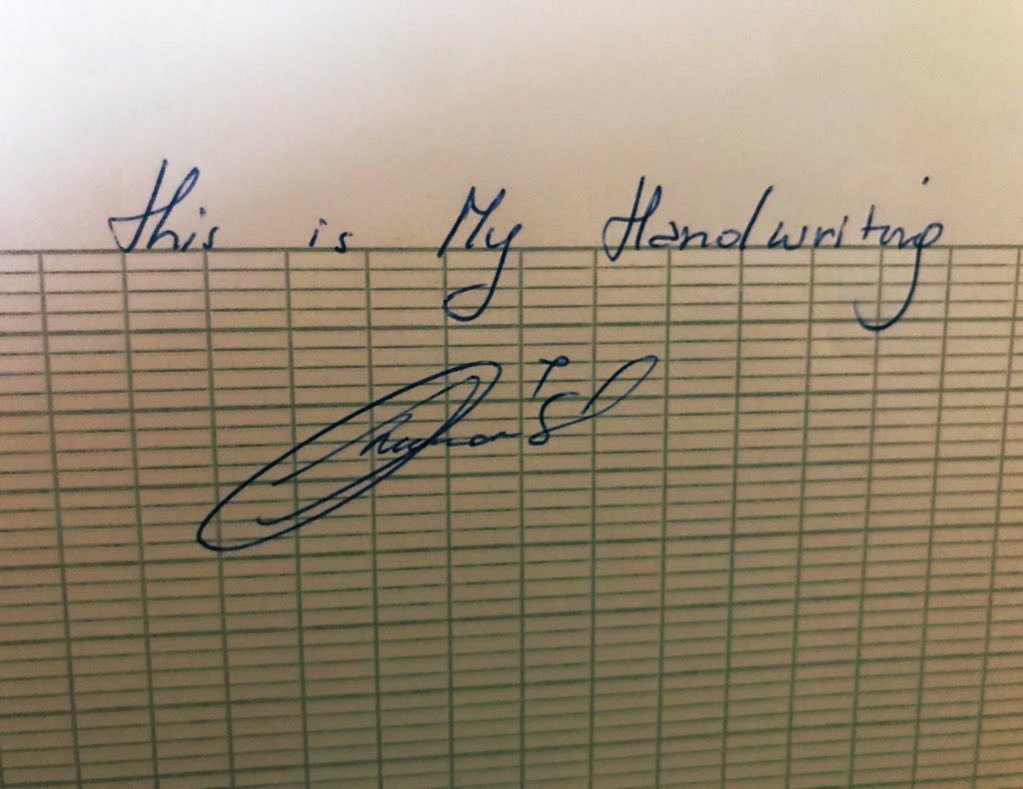 This is My Handwriting